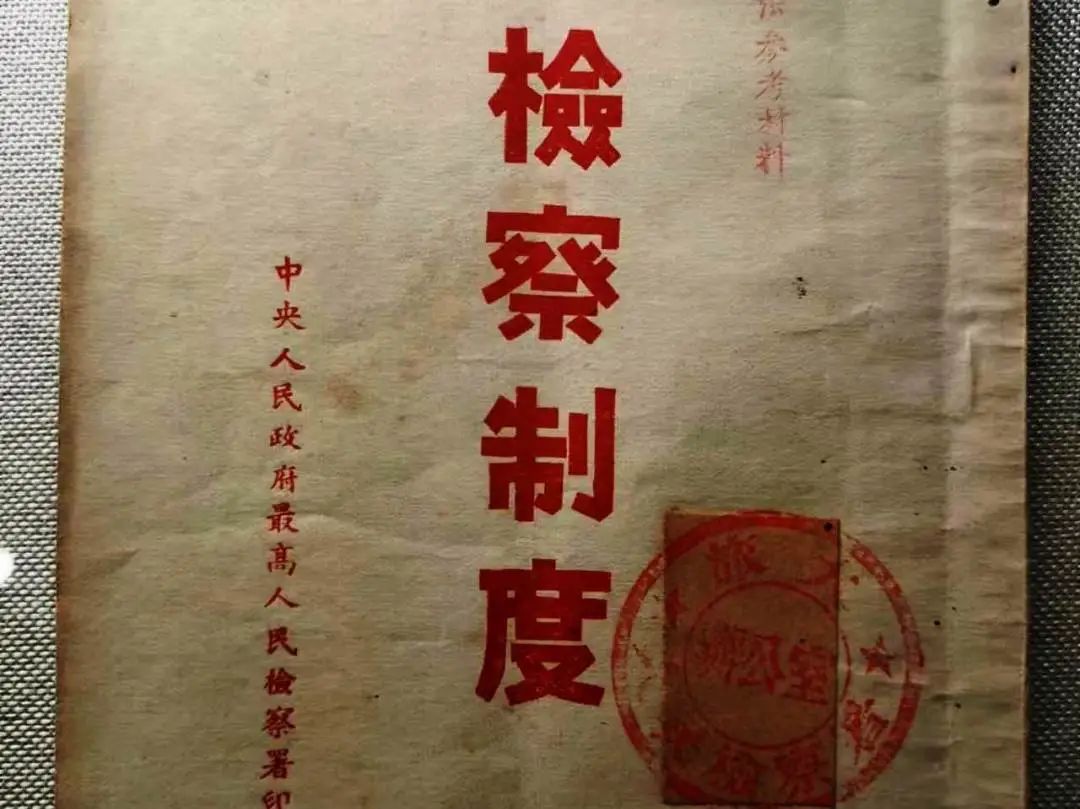 法参考材料
檢察制度
中央人民政府最高人民檢察署印